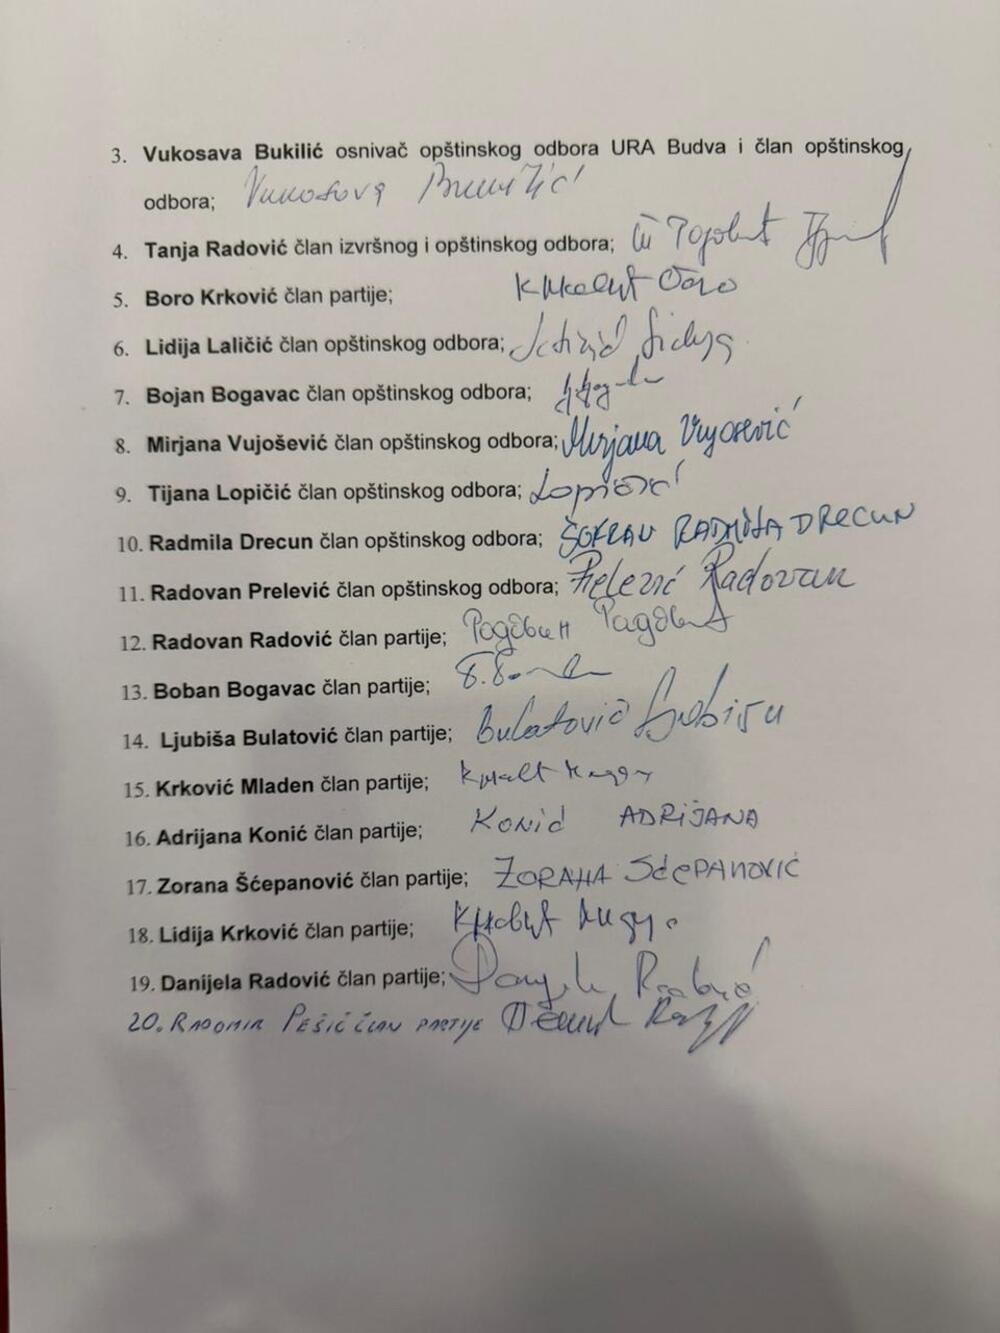 3. Vukosava Bukilić osnivač opštinskog odbora URA Budva i član opštinskog
odbora; Vukosava
4. Tanja Radović član izvršnog i opštinskog odbora;
5. Boro Krković član partije;
6. Lidija Laličić član opštinskog odbora;
7. Bojan Bogavac član opštinskog odbora;
8. Mirjana Vujošević član opštinskog odbora; Mirjana Vujošević
9. Tijana Lopičić član opštinskog odbora; Lopičić
10. Radmila Drecun član opštinskog odbora; RADMILA DRECUN
11. Radovan Prelević član opštinskog odbora; Prelević Radovan
12. Radovan Radović član partije;
13. Boban Bogavac član partije;
14. Ljubiša Bulatović član partije; Bulatović Ljubiša
15. Krković Mladen član partije;
16. Adrijana Konić član partije; KONIĆ ADRIJANA
17. Zorana Šćepanović član partije; ZORANA ŠĆEPANOVIĆ
18. Lidija Krković član partije;
19. Danijela Radović član partije;
20. RADOMIR PEŠIĆ ČLAN PARTIJE